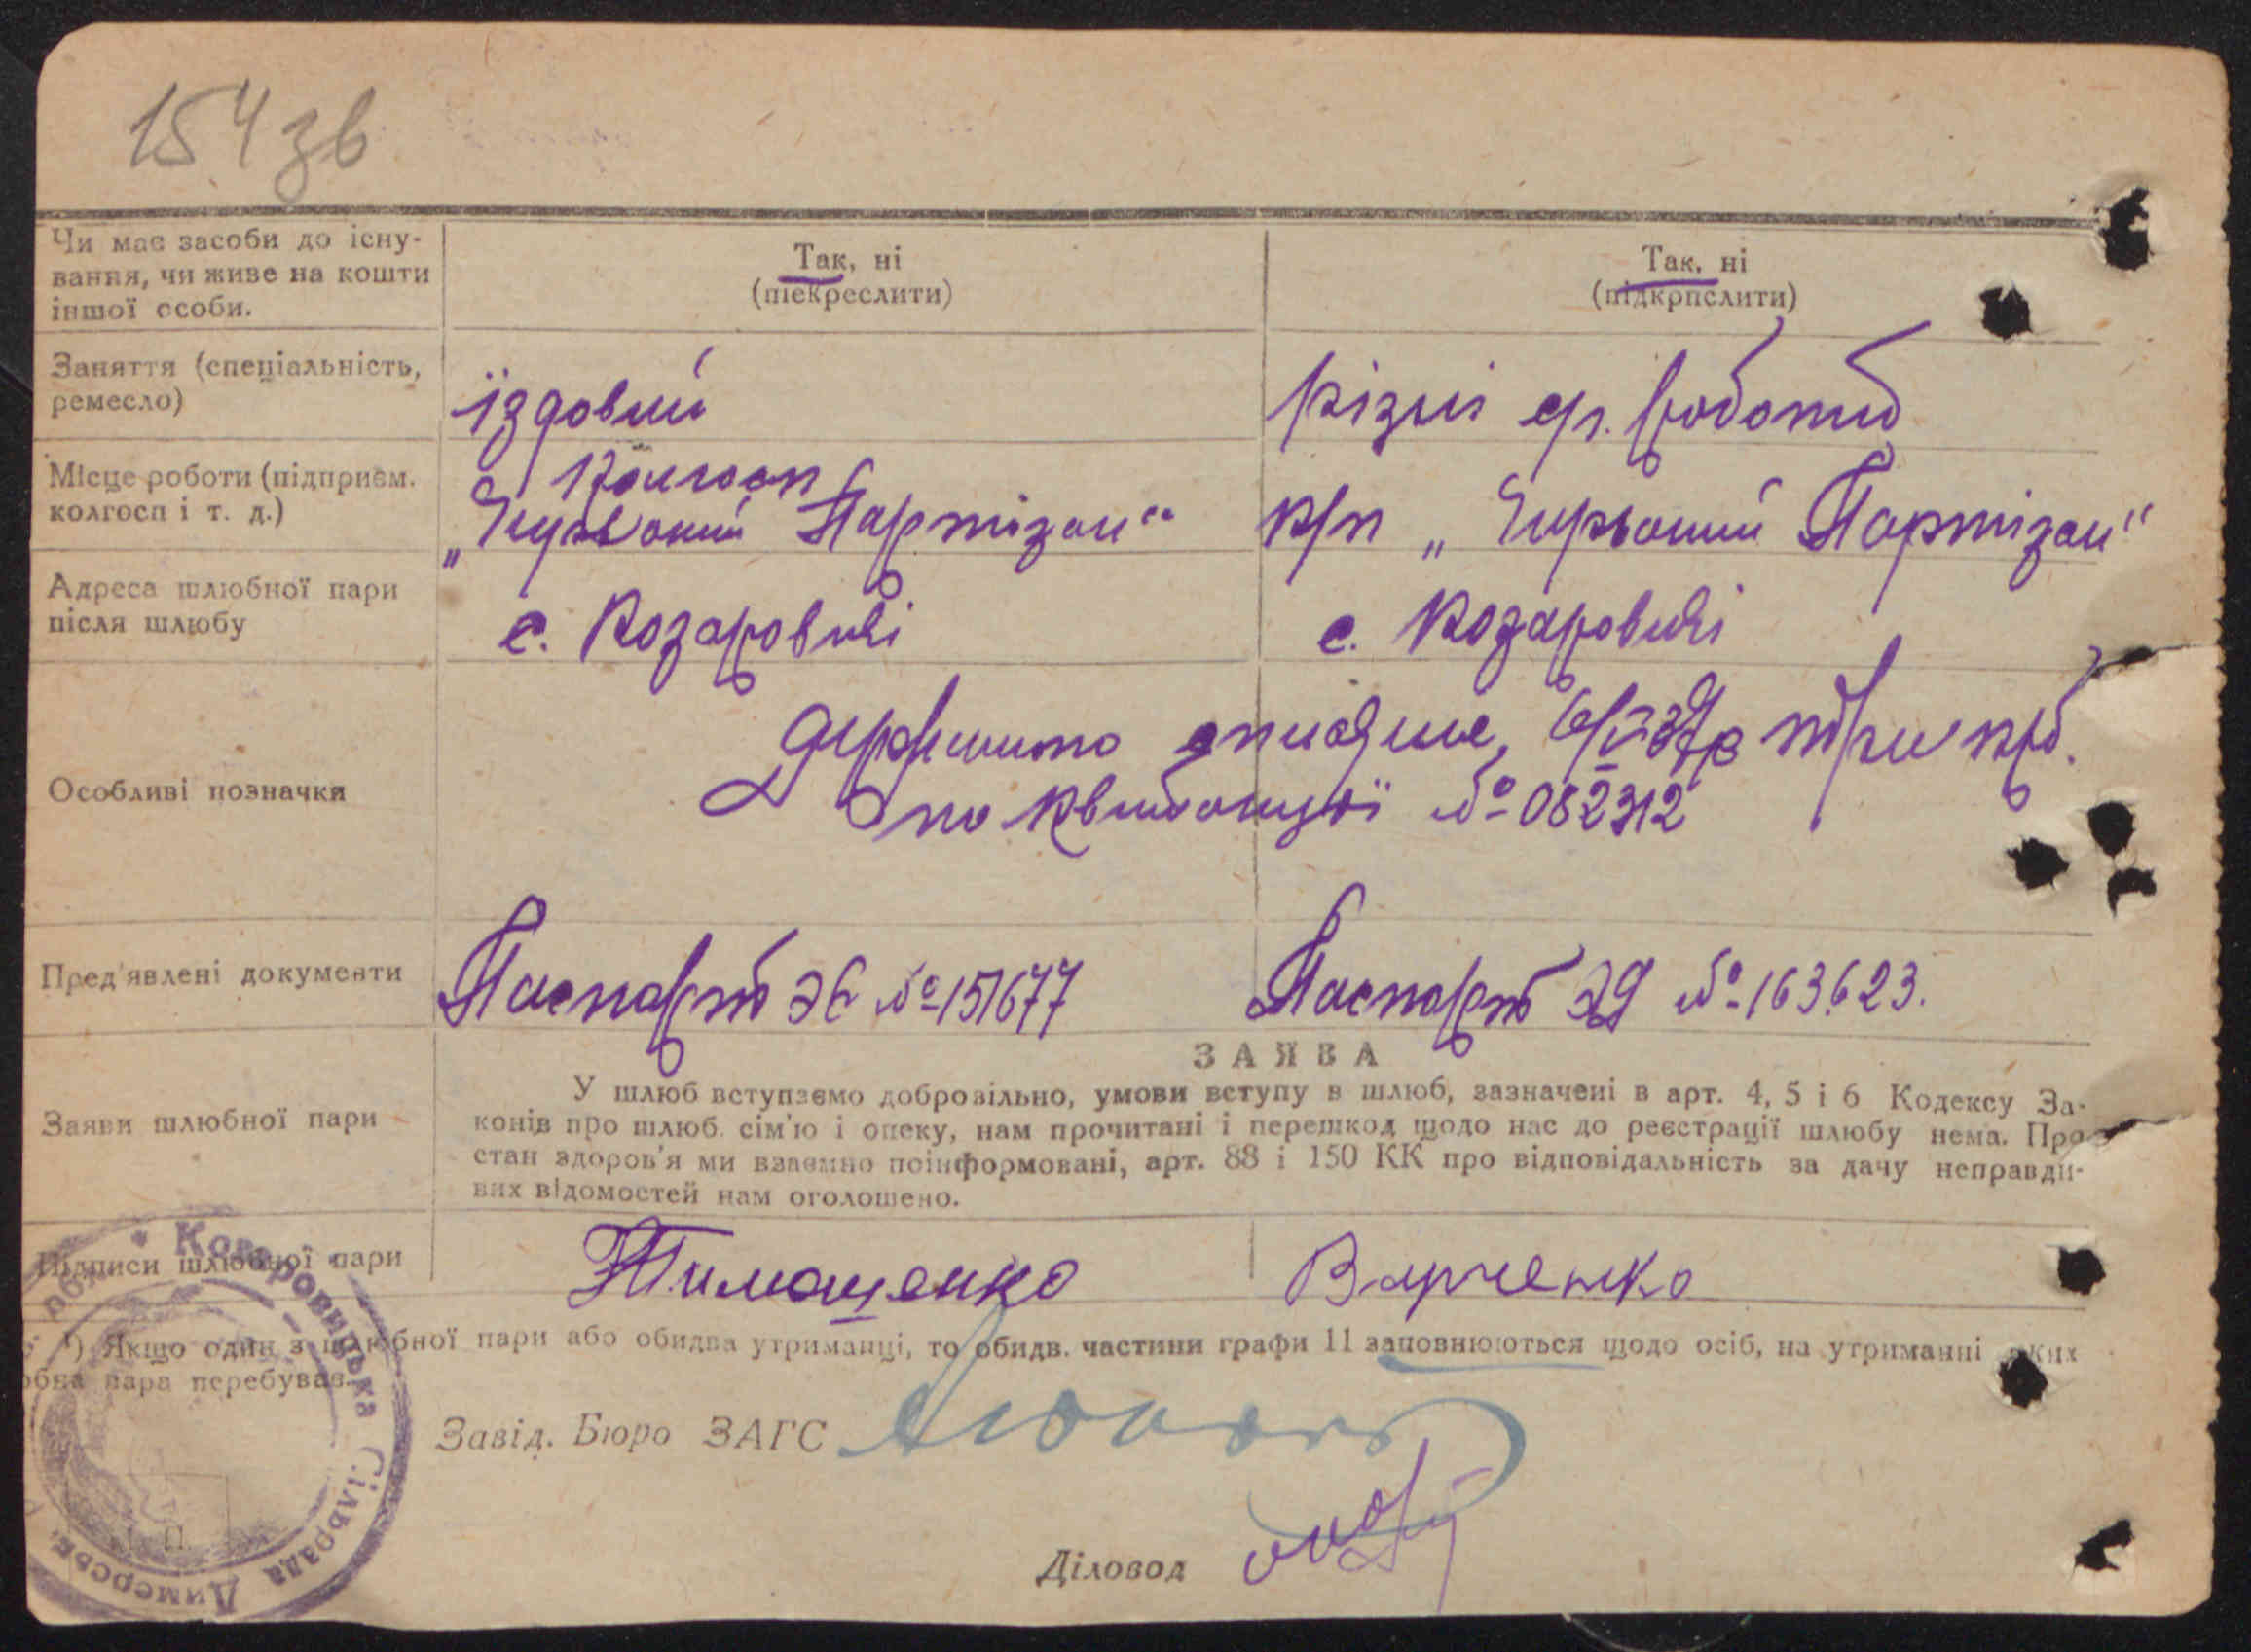 154 зв
Чи має засоби до існу-
вання, чи живе на кошти
іншої особи.
Так, ні
(піекреслити)
Так, ні
(підкрпслити)
Заняття (спеціальність,
ремесло)
їздовий
Різні ср. робота
Місце роботи (підприєм.
колгосп і т. д.)
Колгосп
„Червоний Партізан“
к/п „Червоний Партізан“
Адреса шлюбної пари
після шлюбу
с. Козаровичі
с. Козаровичі
Особливі позначки
Держмито три крб.
по квитанції № 082312
Пред'явлені документи
Паспорт ЭЄ № 151677
Паспорт ЭД № 163623.
Заяви шлюбної пари
ЗАЯВА
У шлюб вступаємо добровільно, умови вступу в шлюб, зазначені в арт. 4, 5 і 6 Кодексу За-
конів про шлюб. сім'ю і опеку, нам прочитані і перешкод щодо нас до реєстрації шлюбу нема. Про
стан здоров'я ми взаємно поінформовані, арт. 88 і 150 КК про відповідальність за дачу неправди-
вих відомостей нам оголошено.
Підписи шлюбної пари
Тимошенко
Варченко
¹) Якщо один з шлюбної пари або обидва утриманці, то обидв. частини графи 11 заповнюються щодо осіб, на утриманні яких
обна пара перебуває.
Завід. Бюро ЗАГС
Діловод
Козаровицька Сільрада Димерськ